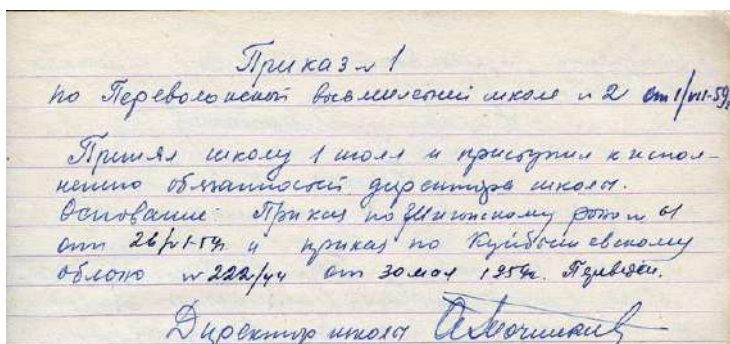 Приказ № 1
по Переволокской восьмилетней школе № 2 от 1/VII-59г.
Принял школу 1 июля и приступил к испол-
нению обязанностей директора школы.
Основание: Приказ по му роно № 61
от 26/VI-59г. и приказ по Куйбышевскому
облоно № 222/уч от 30 мая 1959г.
Директор школы